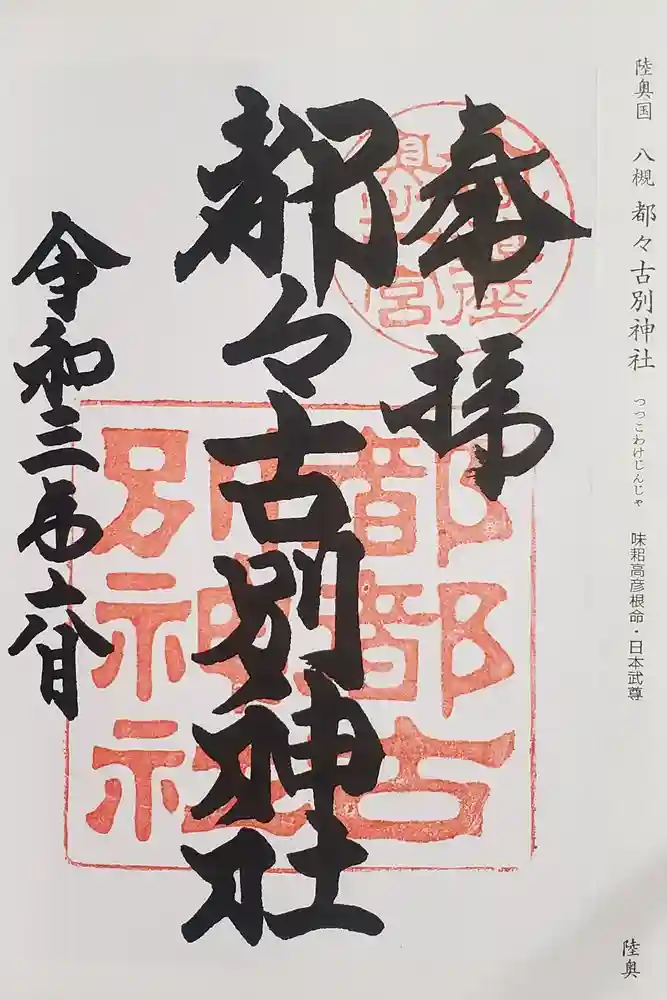 陸奥国 八槻 都々古別神社 つつこわけじんじゃ 味耜高彦根命・日本武尊
陸奥
奉拝
都々古別神社
令和三年六月
都都古
別神社